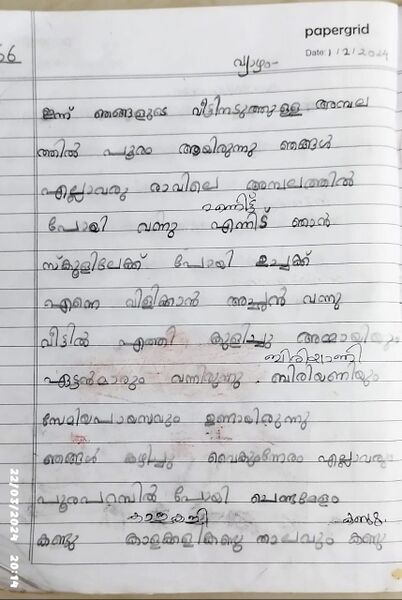 papergrid
66
Date: 1/2/2024
വ്യാഴം-
ഇന്ന് ഞങ്ങളുടെ വീട്ടിനടുത്തുള്ള അമ്പല
ത്തിൽ പൂരം ആയിരുന്നു ഞങ്ങൾ
എല്ലാവരു രാവിലെ അമ്പലത്തിൽ
എന്നിട്ട്
പോയി വന്നു എന്നിട് ഞാൻ
സ്കൂളിലേക്ക് പോയി ഉച്ചക്ക്
എന്നെ വിളിക്കാൻ അച്ഛൻ വന്നു
വീട്ടിൽ എത്തി കുളിച്ചു അമ്മായിയും
ബിരിയാണി
ഏട്ടൻമാരും വന്നിരുന്നു. ബിരിയണിയും
സേമിയപായസവും ഉണായിരുന്നു
ഞങ്ങൾ കഴിച്ചു വൈകുന്നേരം എല്ലാവരും
പൂരപറമ്പിൽ പോയി ചെണ്ടമേളം
കാളകളി കണ്ടു
കണ്ടു കാളക്കളികണ്ടെ താലവും കണ്ടു
22/03/2024 20:14